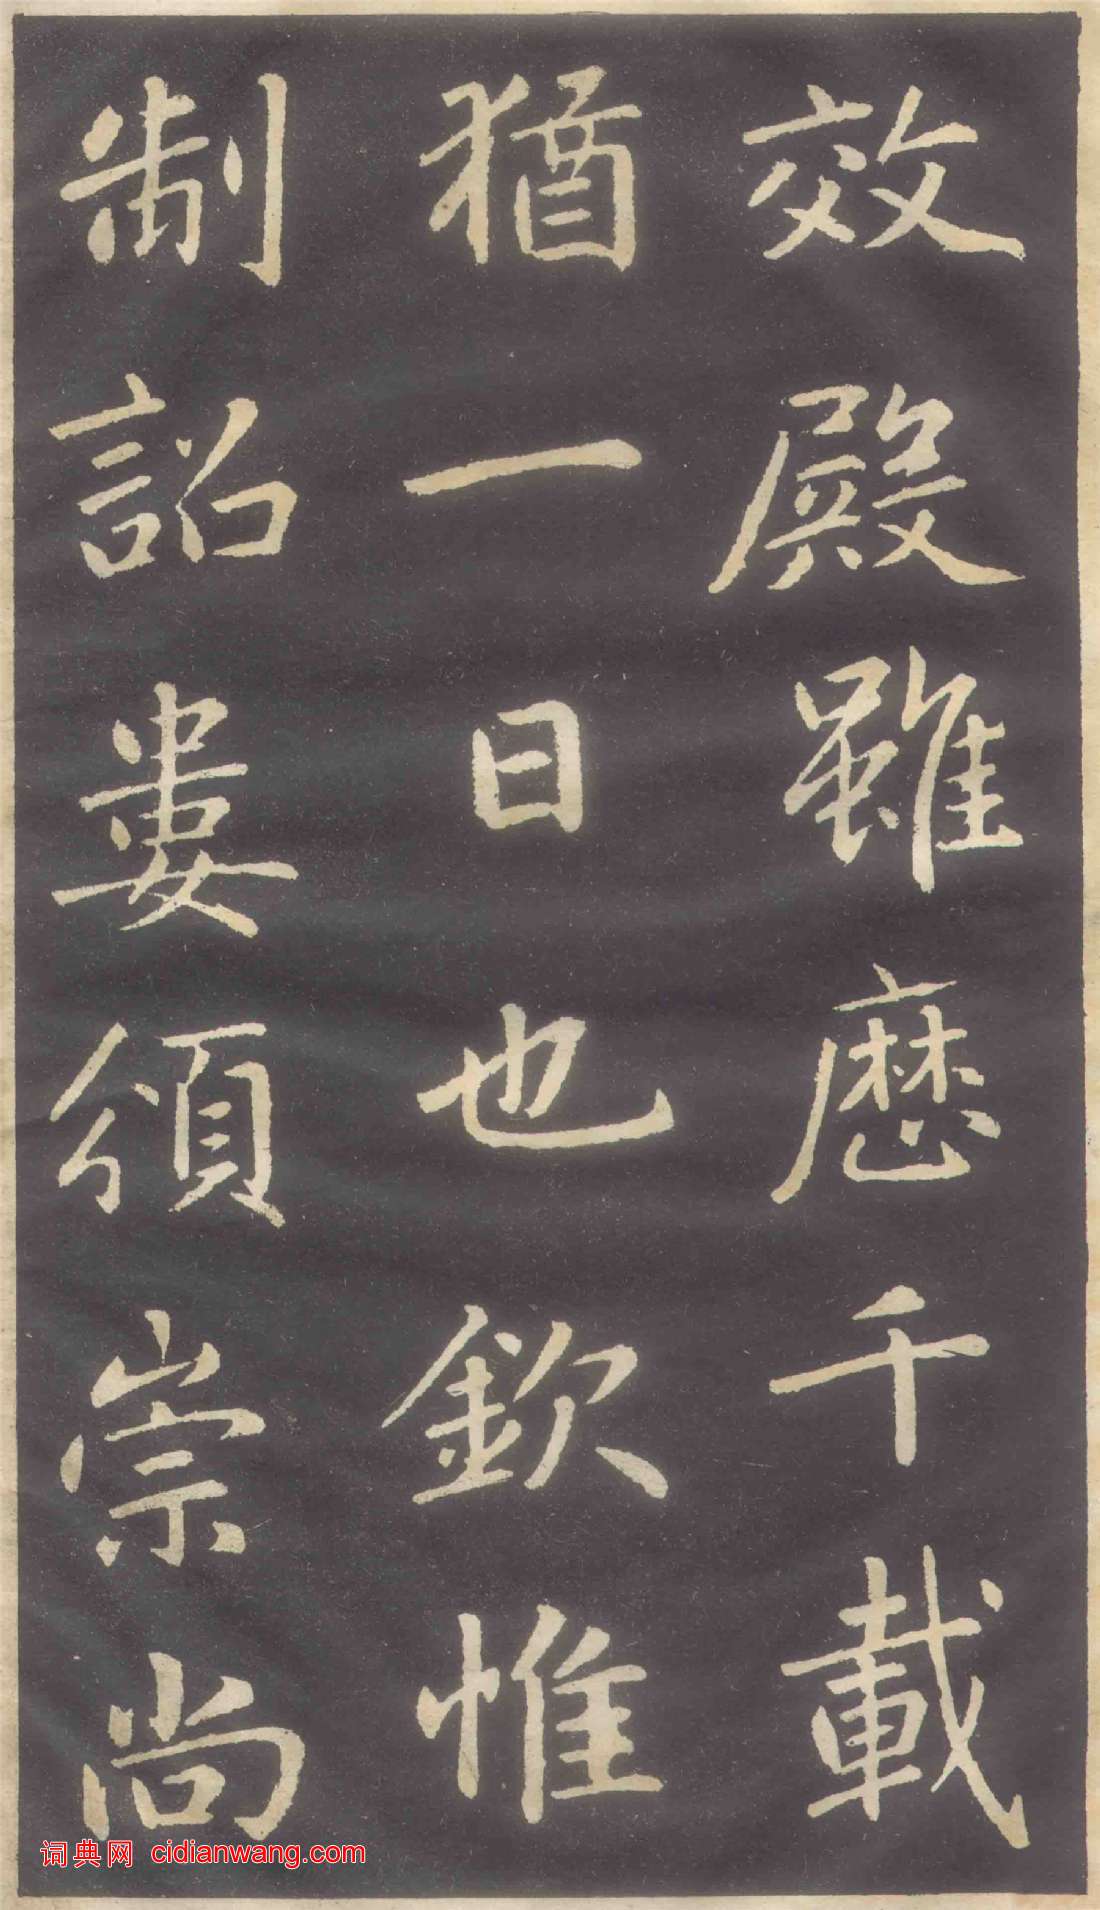 效殿雖歷千載
猶一日也欽惟
制詔婁頒崇尚
词典网 cidianwang.com